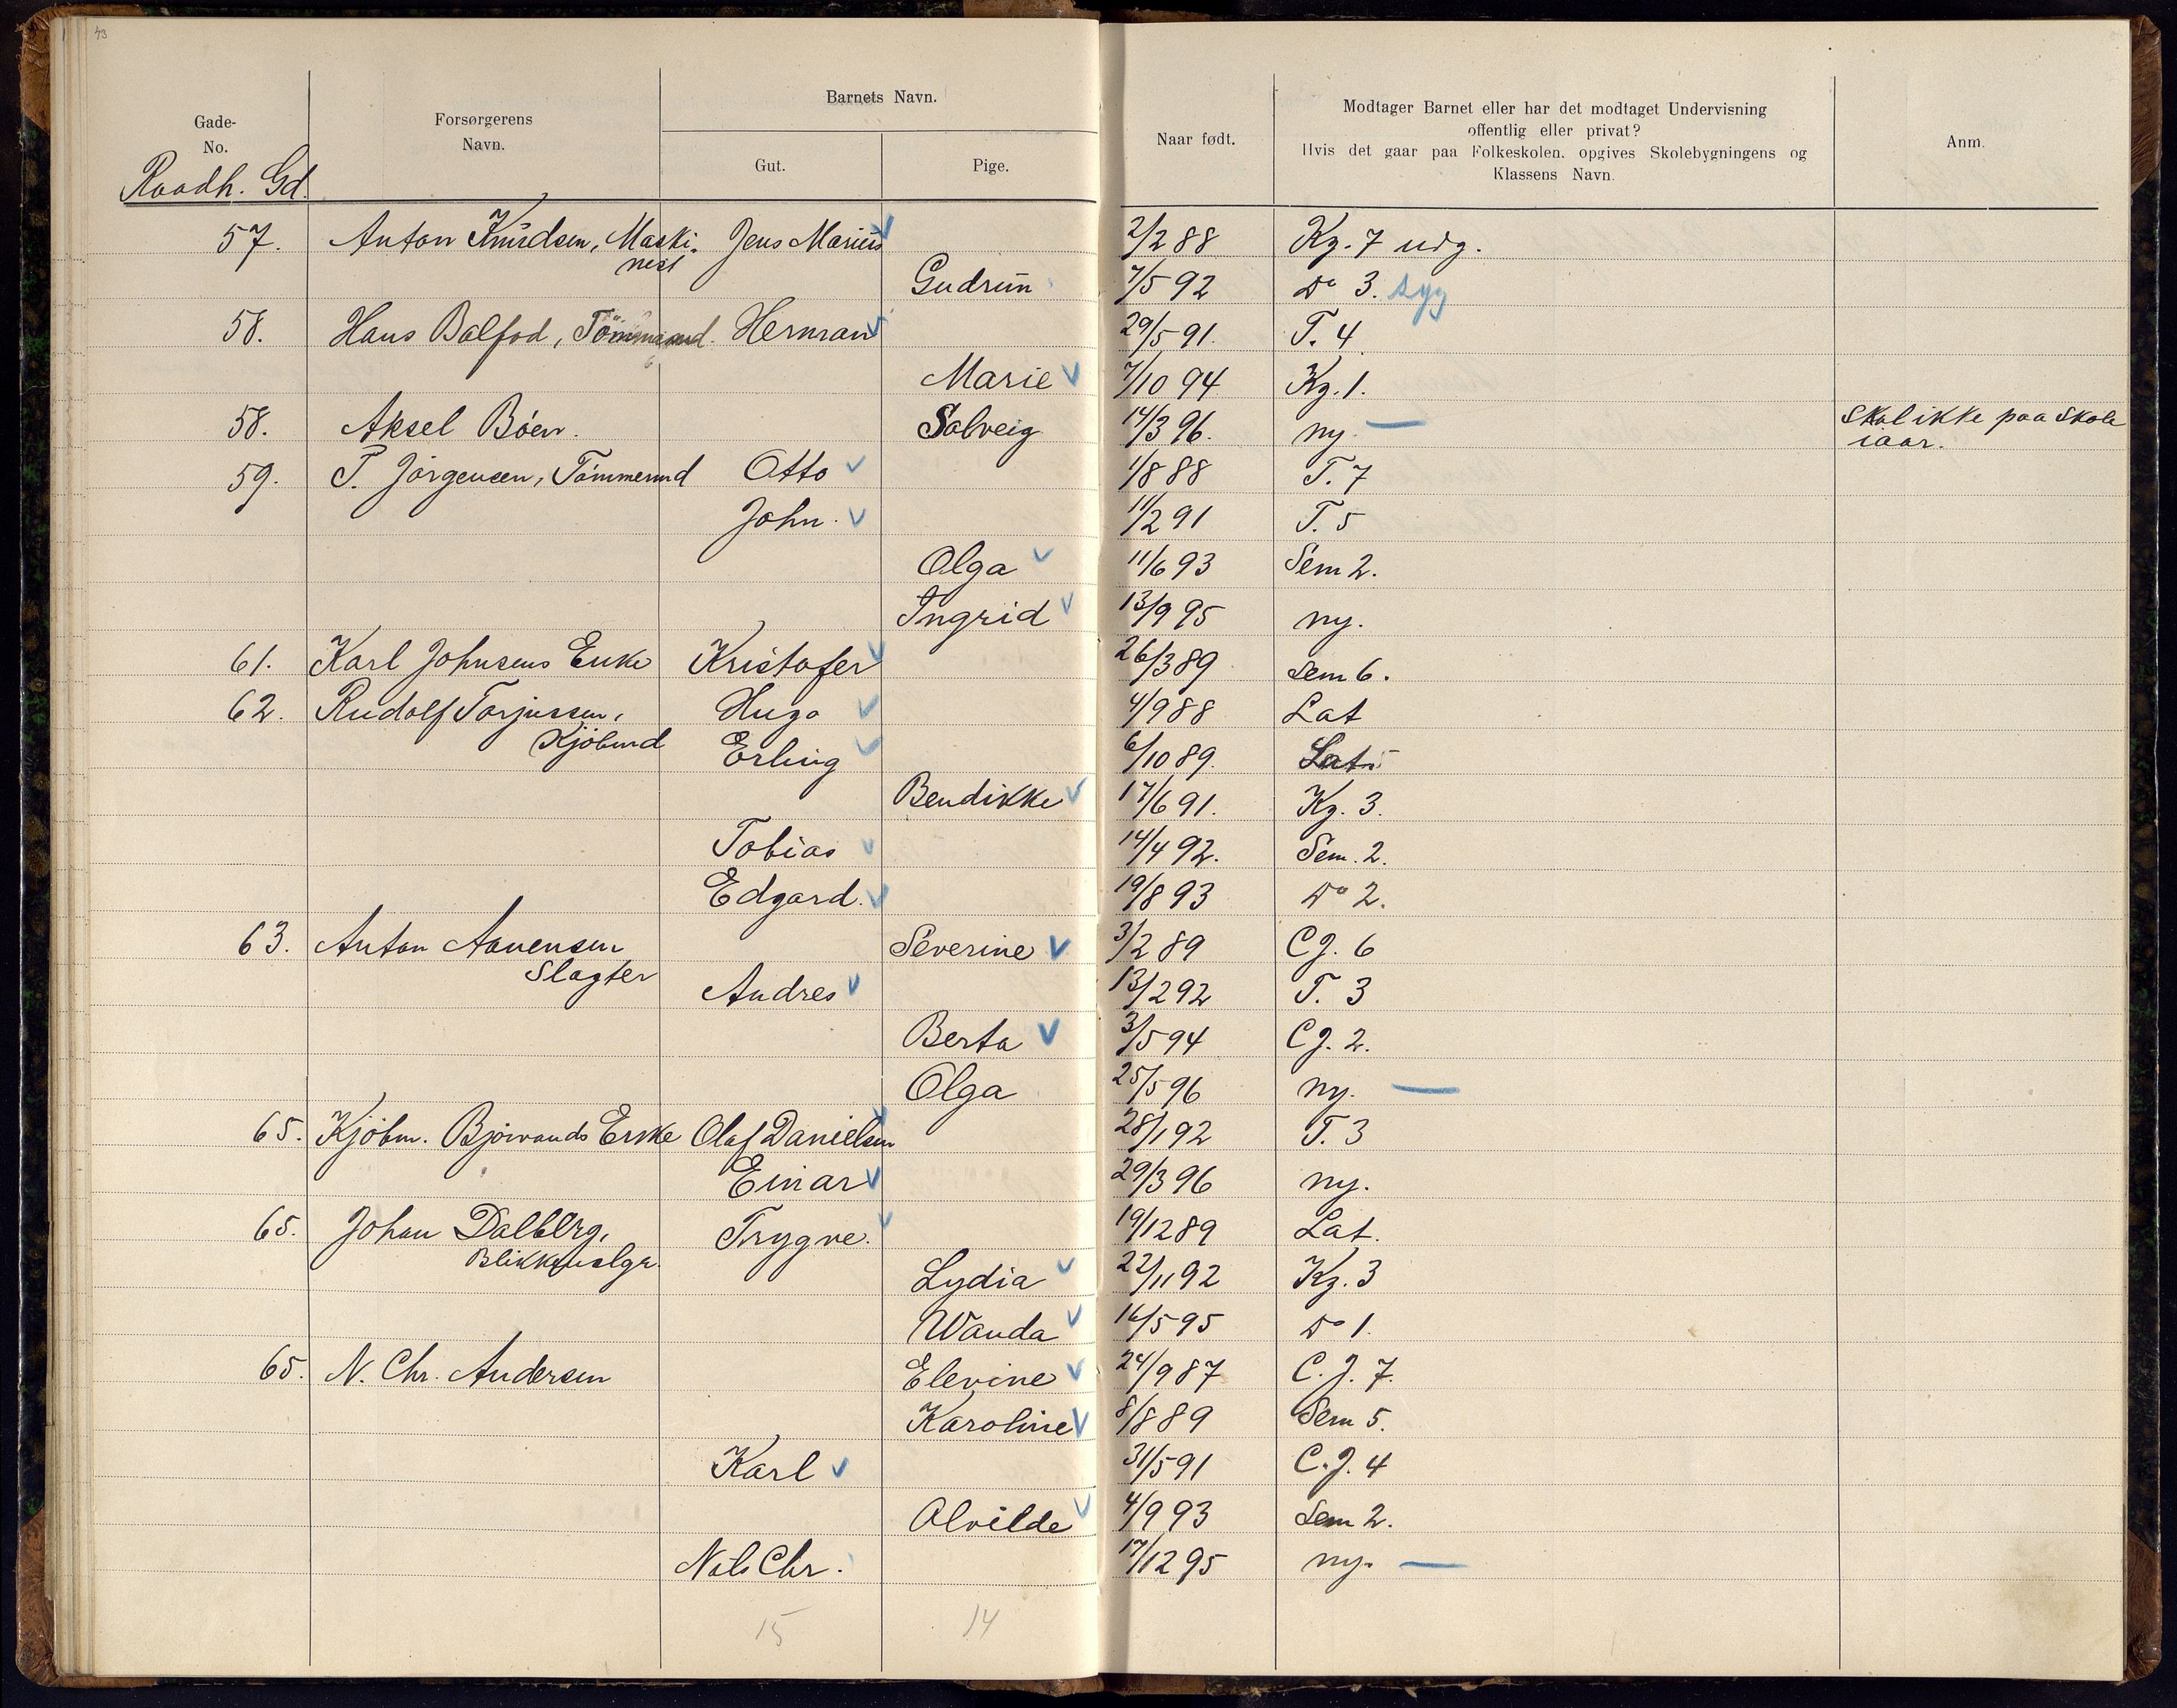 43
Gade-
No.
Forsørgerens
Navn.
Barnets Navn.
Gut.
Pige.
Naar født.
Modtager Barnet eller har det modtaget Undervisning
offentlig eller privat?
Hvis det gaar paa Folkeskolen, opgives Skolebygningens og
Klassens Navn.
Anm.
Raadh. Gd.
57. Anton Knudsen, Maski- Jens Marius 2/2 88 Kg. 7 udg.
nist
Gudrun 7/5 92 Do 3. syg
58. Hans Balfod, Tömmermd. Herman 29/5 91. T. 4
Marie 7/10 94 Kg. 1.
58. Aksel Böen. Solveig 14/3 96. ny. — Skal ikke paa Skole
iaar.
59. P. Jörgensen, Tömmermd Otto 1/8 88 T. 7
John. 11/2 91 T. 5
Olga 11/6 93 Sem 2.
Ingrid 13/9 95 ny.
61. Karl Johnsens Enke Kristofer 26/3 89 Sem 6.
62. Rudolf Torjussen, Hugo 4/9 88 Lat
Kjöbmd Erling 6/10 89. Lat.
Bendikke 17/6 91. Kg. 3.
Tobias 14/4 92. Sem. 2.
Edgard. 19/8 93 Do 2.
63. Anton Aanensen Severine 3/2 89 C J. 6
Slagter Andres 13/2 92 T. 3
Berta 3/5 94 C J. 2.
Olga 25/5 96 ny. —
65. Kjöbm. Bjorvands Enke Olaf Danielsen 28/1 92 T. 3
Einar 29/3 96 ny.
65. Johan Dalberg, Trygve. 19/12 89 Lat.
Lydia 22/11 92 Kg. 3
Wanda 16/5 95 Do 1.
65. N. Chr. Andersen Elevine 24/9 87 C. J. 7.
Karoline 8/8 89 Sem 5.
Karl 31/5 91 C. J. 4
Alvilde 4/9 93 Sem 2.
Nils Chr. 17/12 95 ny. —
15 14